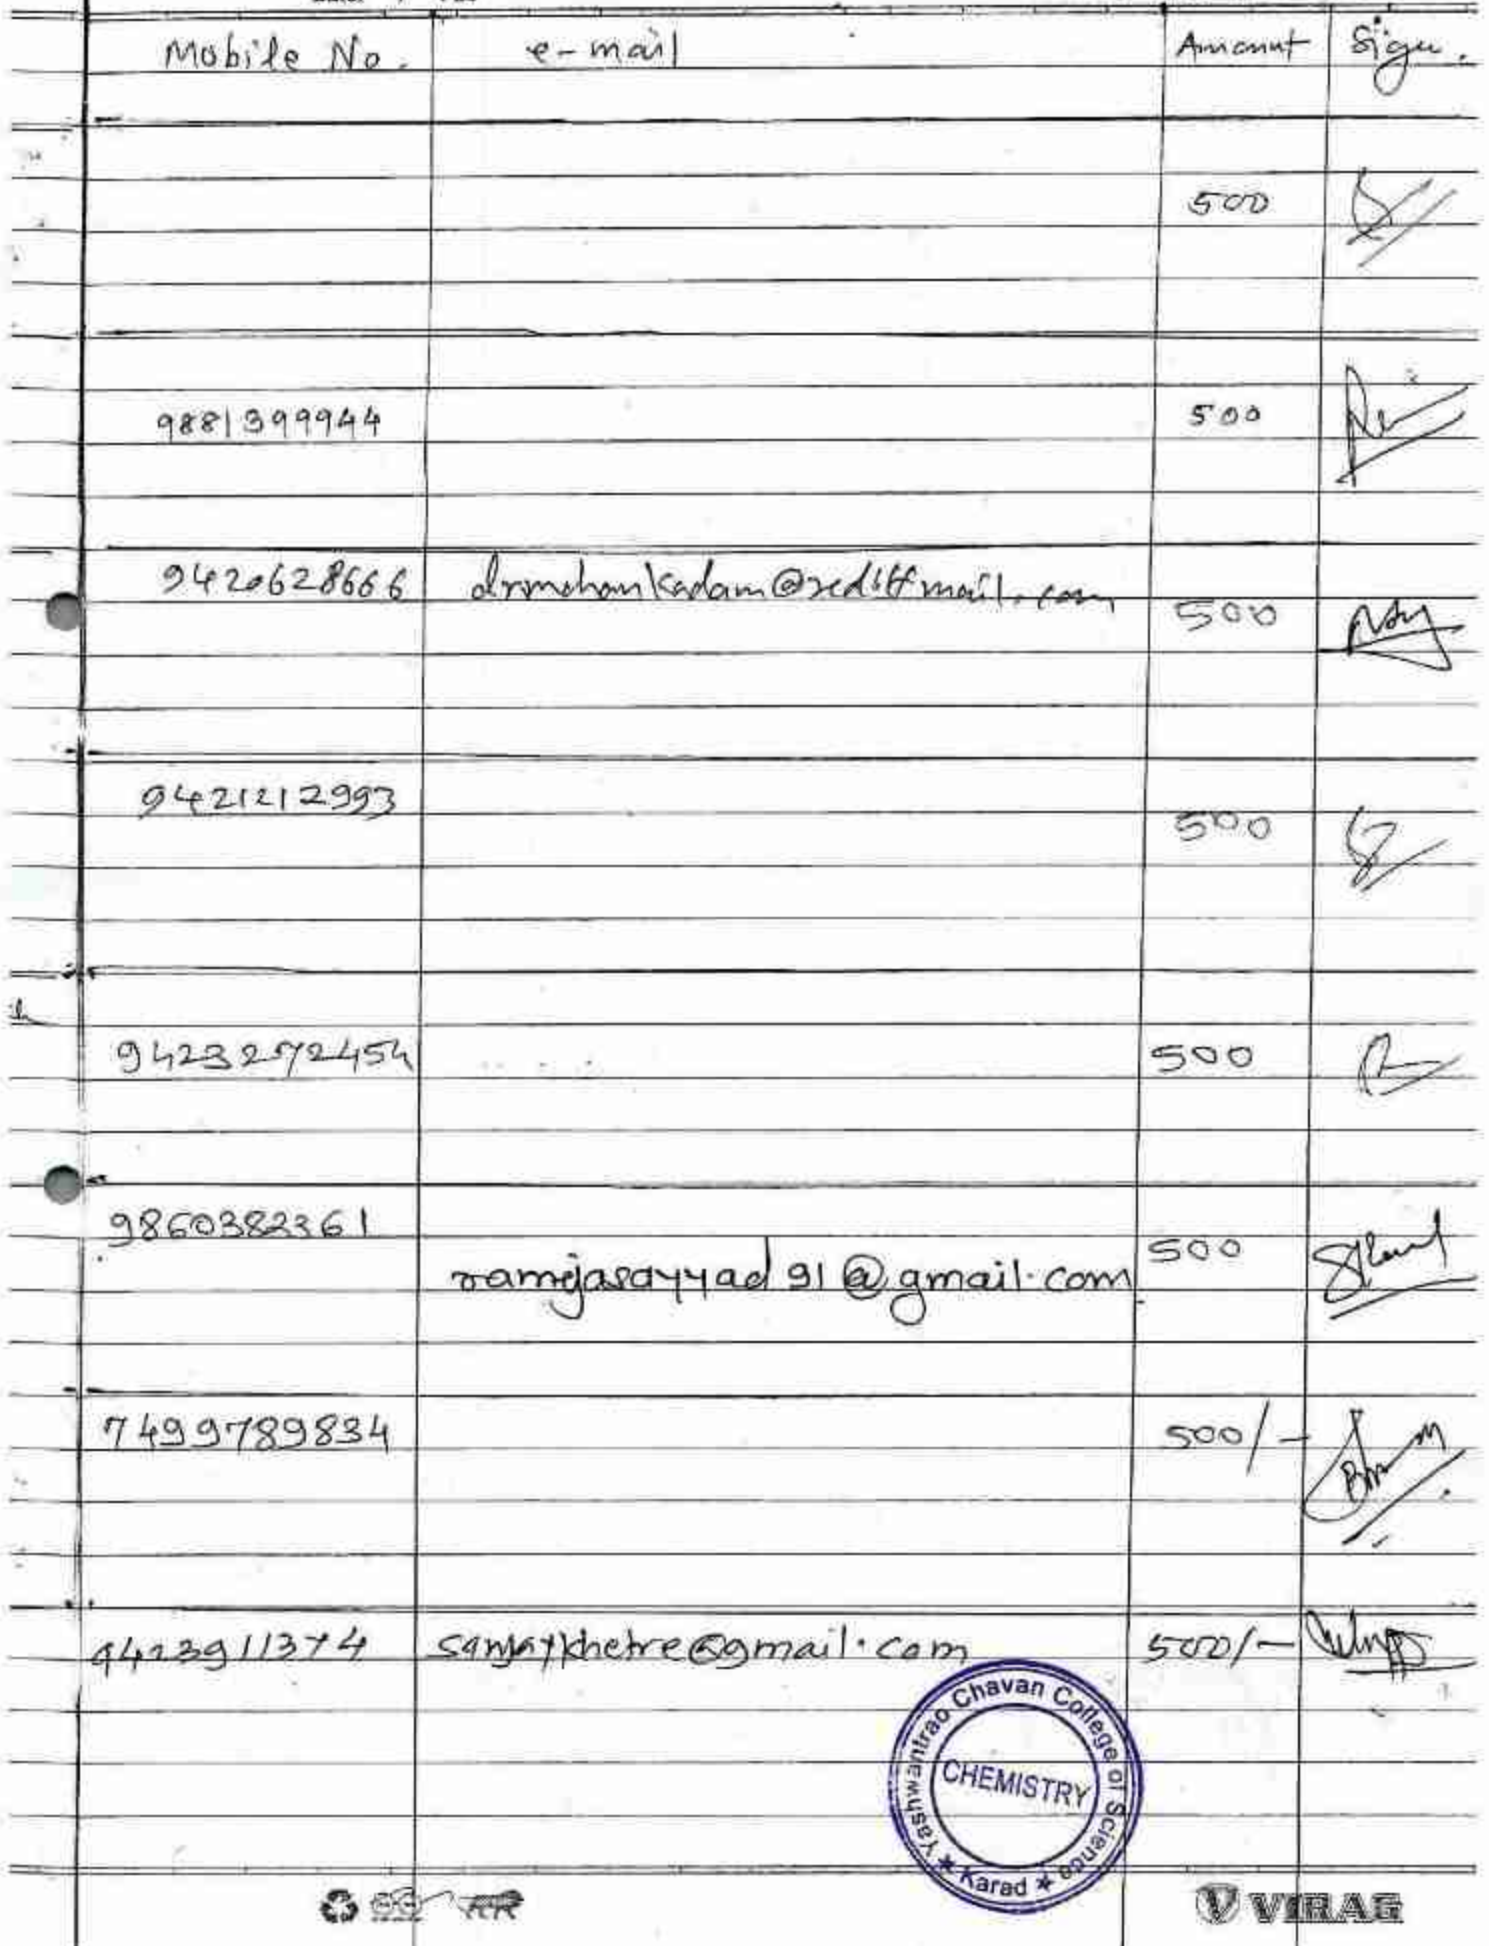 Mobile No. e-mail Amount Sign.
500
9881399944 500
9420628666 drmohankadam@rediffmail.com 500
9421212993 500
9423272454 500
9860382361 ramejasayyad91@gmail.com 500
7499789834 500/-
9423911374 sanjaykhetre@gmail.com 500/-
Yashwantrao Chavan College of Science
CHEMISTRY
* Karad *
VIRAG